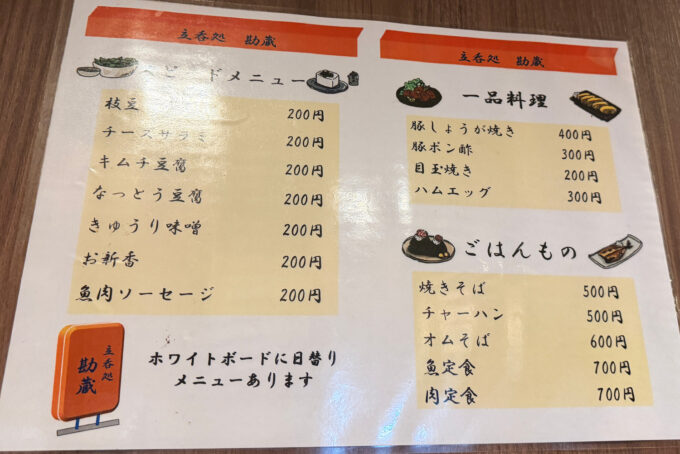 立呑処 勘蔵
ドメニュー
枝豆 200円
チーズサラミ 200円
キムチ豆腐 200円
なっとう豆腐 200円
きゅうり味噌 200円
お新香 200円
魚肉ソーセージ 200円
立呑処
勘蔵
ホワイトボードに日替り
メニューあります
立呑処 勘蔵
一品料理
豚しょうが焼き 400円
豚ポン酢 300円
目玉焼き 200円
ハムエッグ 300円
ごはんもの
焼きそば 500円
チャーハン 500円
オムそば 600円
魚定食 700円
肉定食 700円